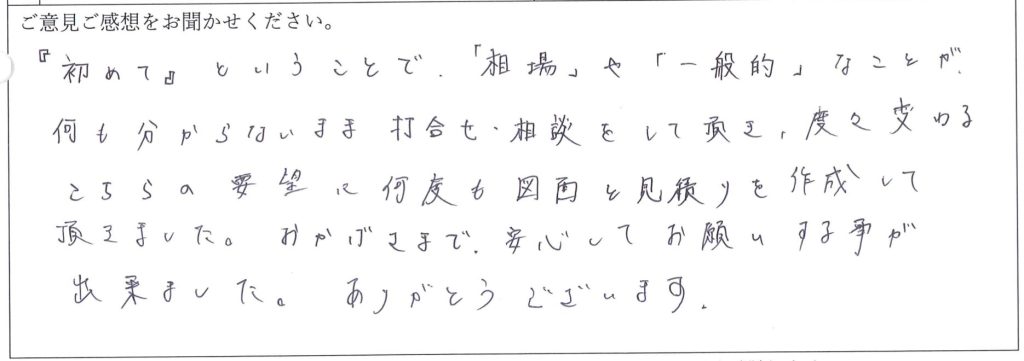 ご意見ご感想をお聞かせください。
『初めて』ということで、「相場」や「一般的」なことが、
何も分からないまま打合せ・相談をして頂き、度々変わる
こちらの要望に何度も図面と見積りを作成して
頂きました。おかげさまで、安心してお願いする事が
出来ました。ありがとうございます。